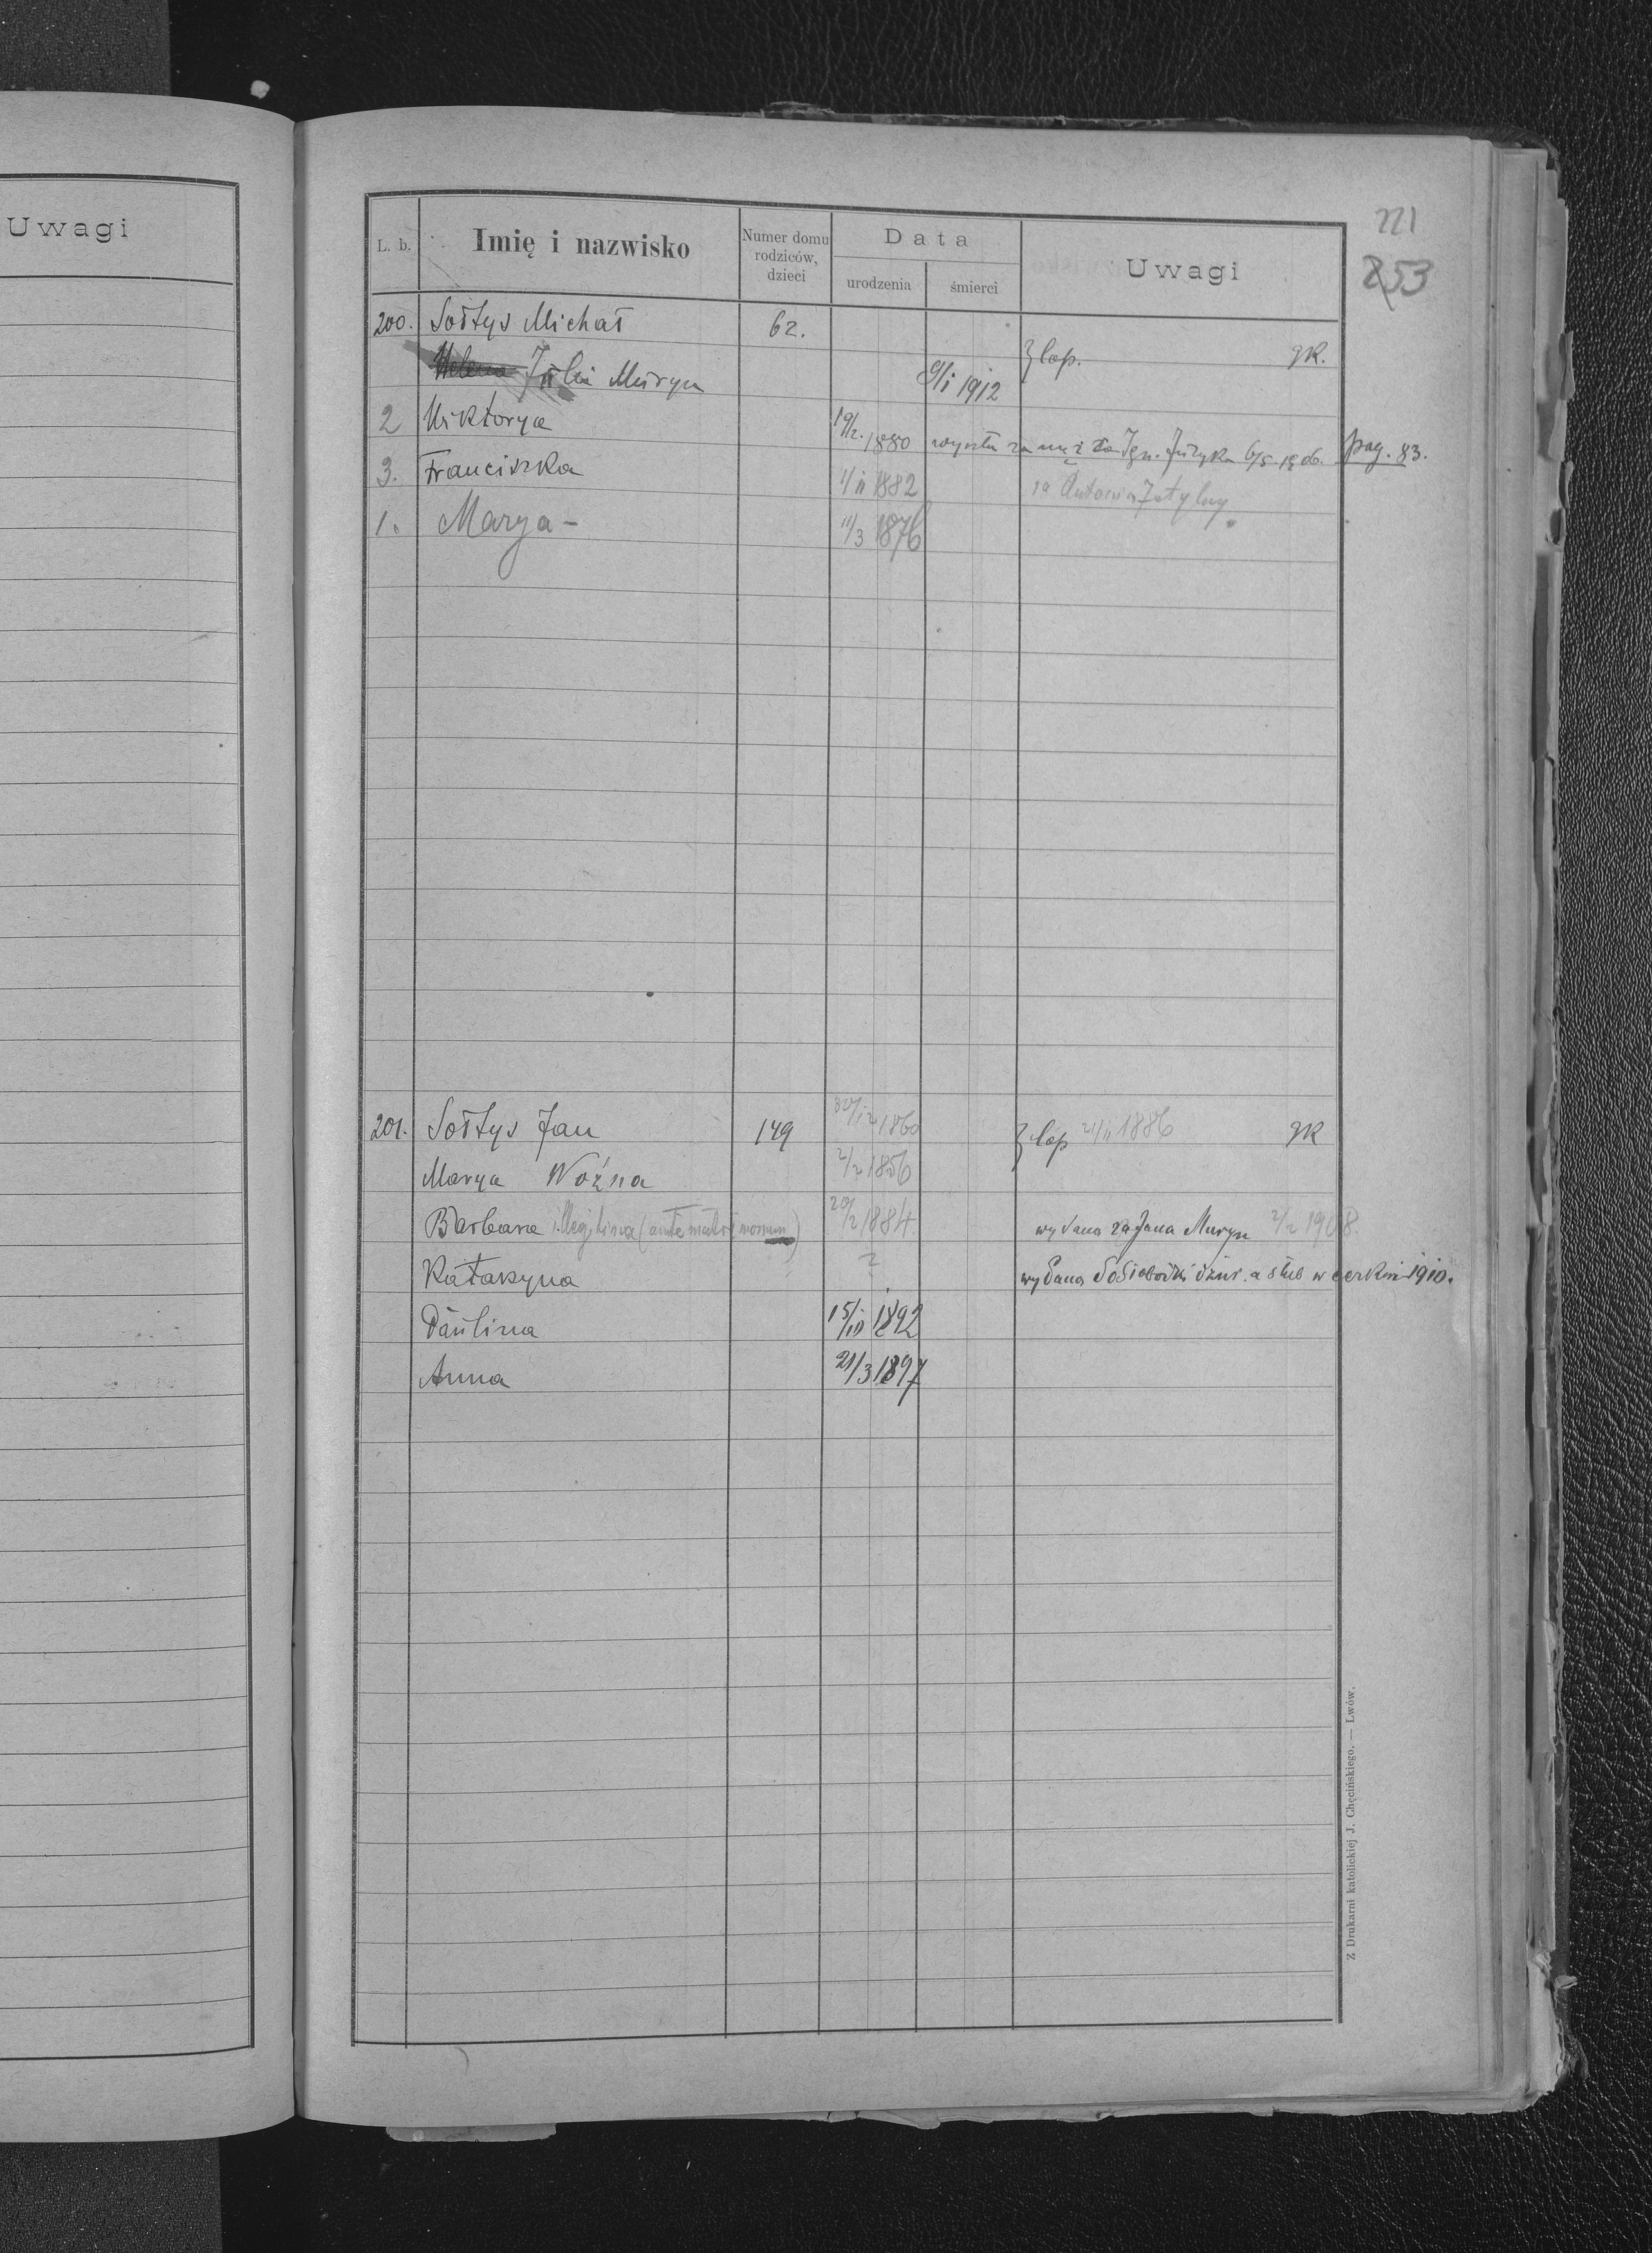 Uwagi
221
253
L. b. Imię i nazwisko Numer domu rodziców, dzieci Data urodzenia śmierci Uwagi
200. Sołtys Michał 62. lop. gr.
Helena Julia Muryn 6/I 1912
2 Wiktorya 19/2. 1880 wyszła za mąż za Ign. Juzyka 6/5 1906. pag. 83.
3. Franciszka 1882 za Antoniego
1. Marya - 11/3 1876
201. Sołtys Jan 149 1860 lop 21/II 1886 gr
Marya Woźna 2/2 1856
Barbara illegitima (ante matrimonium) 20/2 1884 wydana za Jana Muryn 2/2 1908.
Katarzyna ? wydana a ślub w cerkwi 1910.
Paulina 15/10 1892
Anna 21/3 1897
Z Drukarni katolickiej J. Chęcińskiego. — Lwów.